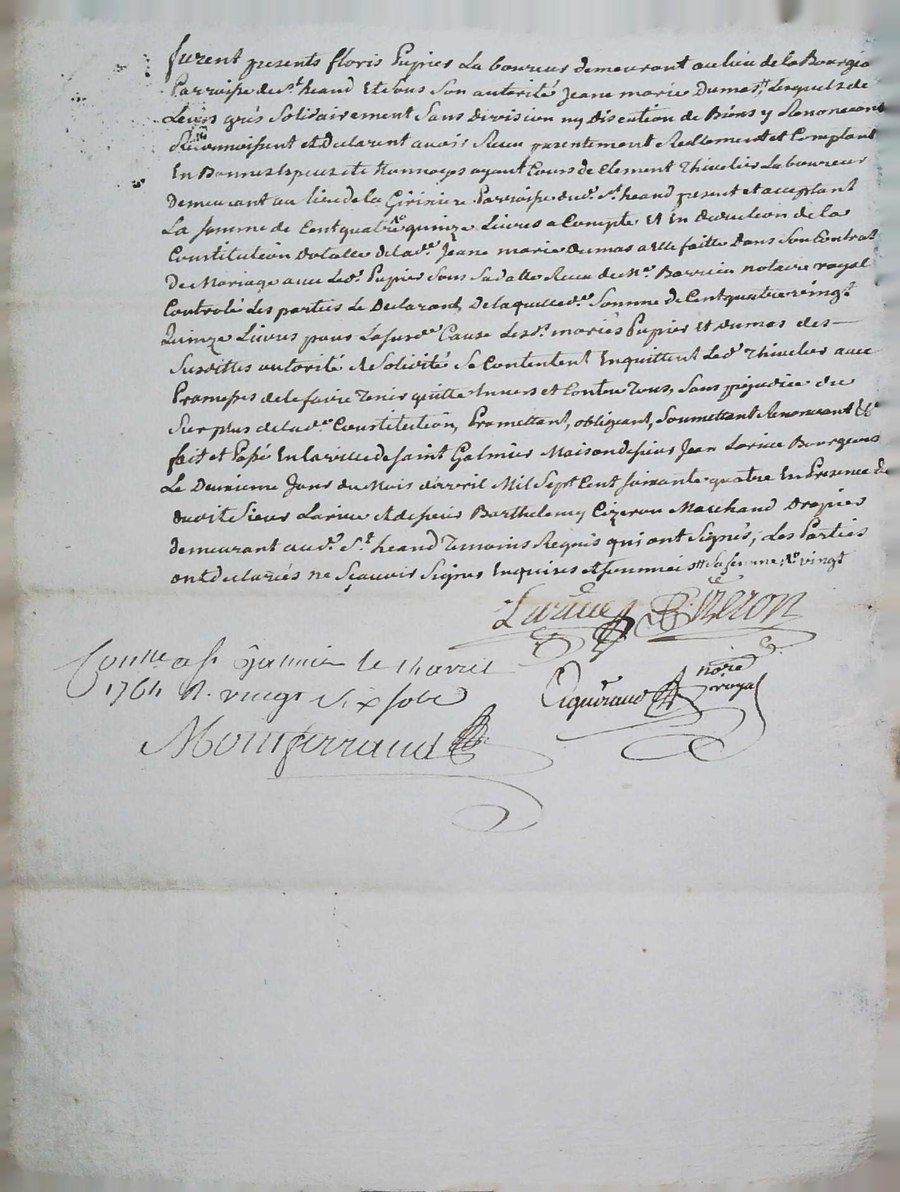 furent presents floris Pupier Laboureur demeurant au lieu de la Bourgia
Parroisse de St heand Et sous son autorité Jeane marie Dumas, Lesquels de
Leurs grés Solidairement Sans division ny discution de Biens y Renonceant
Reconnoissent et declarent avoir Receu presentement Reellement et Comptant
En Bonnes Especes et monnoyes ayant Cours de Clement Thivelier Laboureur
demeurant au lieu de la Giriniere Parroisse dud. St heand present et acceptant
La somme de Cent quatre quinze Livres a Compte Et En deduction de la
Constitution Dotalle de lade Jeane marie Dumas a Elle faitte Dans son Contrat
De Mariage avec led. Pupier Sous Sa datte Receu de Me notaire royal
Controlé les parties le Declarant, De laquelle de. Somme de Cent quatre vingt
Quinze Livres pour La susde Cause Lesd. mariés Pupier Et Dumas des
Susdittes autorité et Solidité Se Contentent En quittent Led. Thivelier avec
Promesses de le faire Tenir quitte Envers et Contre Tous, Sans préjudice du
Surplus de lade Constitution, Promettant, obligeant, Soumettant Renonceant &c
fait et Passé En la ville de Saint Galmier Maison de sieur Jean Larive Bourgeois
Le Deuxieme Jour du Mois d'avril Mil Sept Cent soixante quatre En Presence du
dudit Sieur Larive et de sieur Barthelemy Cizeron Marchand Drapier
demeurant aud. St heand Temoins Requis qui ont Signés, Les Parties
ont declarés ne Sçauoir Signer Enquises et sommeés vingt
Larive Cizeron
Conlle a St Galmier le 1764 R. vingt six sols
notre
royal
Monferrand